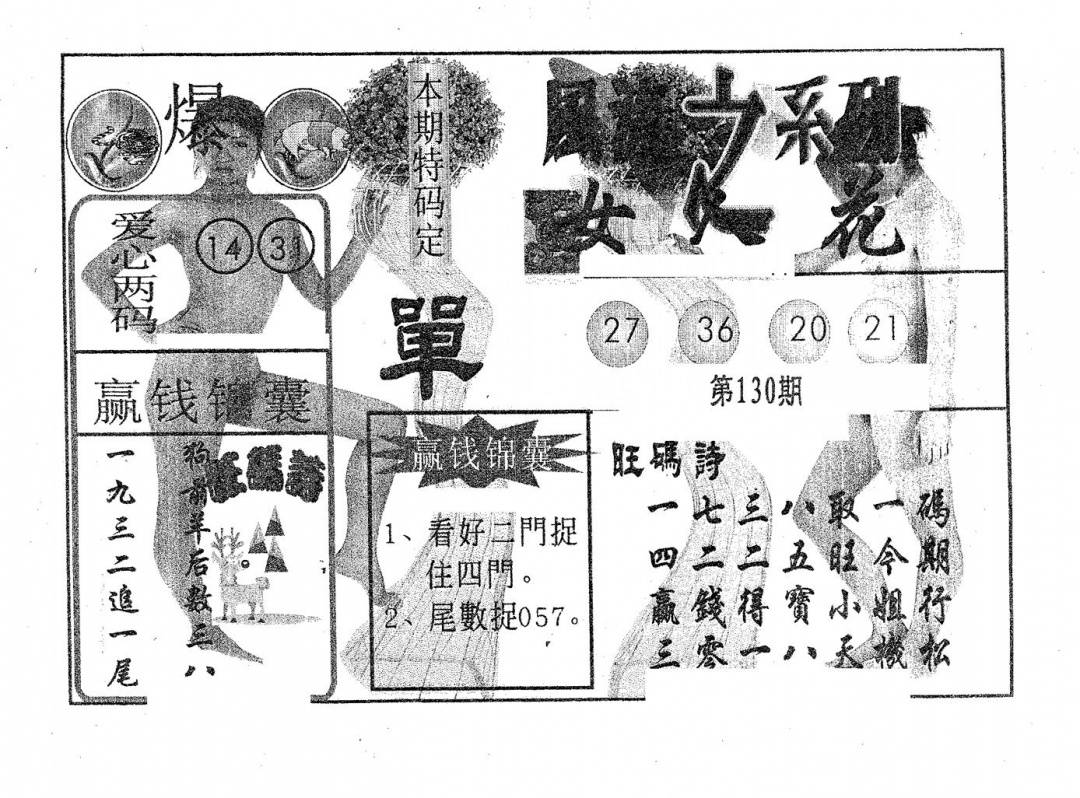 爆
本期特码定
單
爱心两码
14 31
赢钱锦囊
狗前羊后数三八
一九三二追一尾
旺碼詩
赢钱锦囊
1、看好二門捉
住四門。
2、尾數捉057。
之系列
女人花
27 36 20 21
第130期
旺碼詩
一七三八取一碼
四二二五旺今期
赢錢得寶小姐行
三零一八天機松